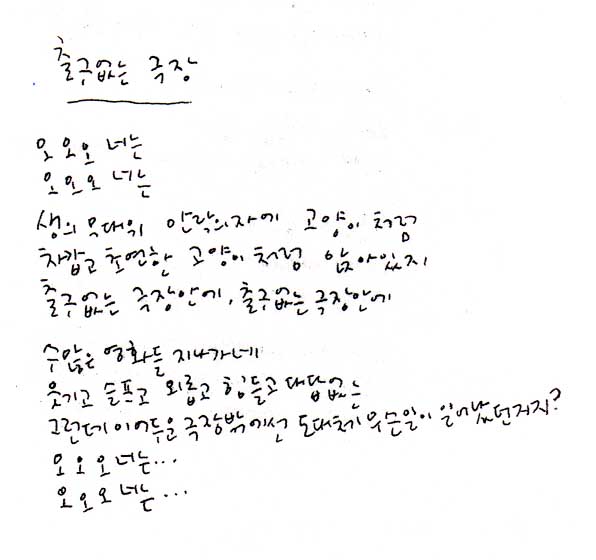 출구없는 극장
오오오 너는
오오오 너는
생의 무대위 안락의자에 고양이 처럼
차갑고 초연한 고양이 처럼 앉아있지
출구없는 극장안에, 출구없는 극장안에
수많은 영화들 지나가네
웃기고 슬프고 외롭고 힘들고 대답없는
그런데 이 어두운 극장밖에선 도대체 무슨일이 일어났던거지?
오오오 너는...
오오오 너는...